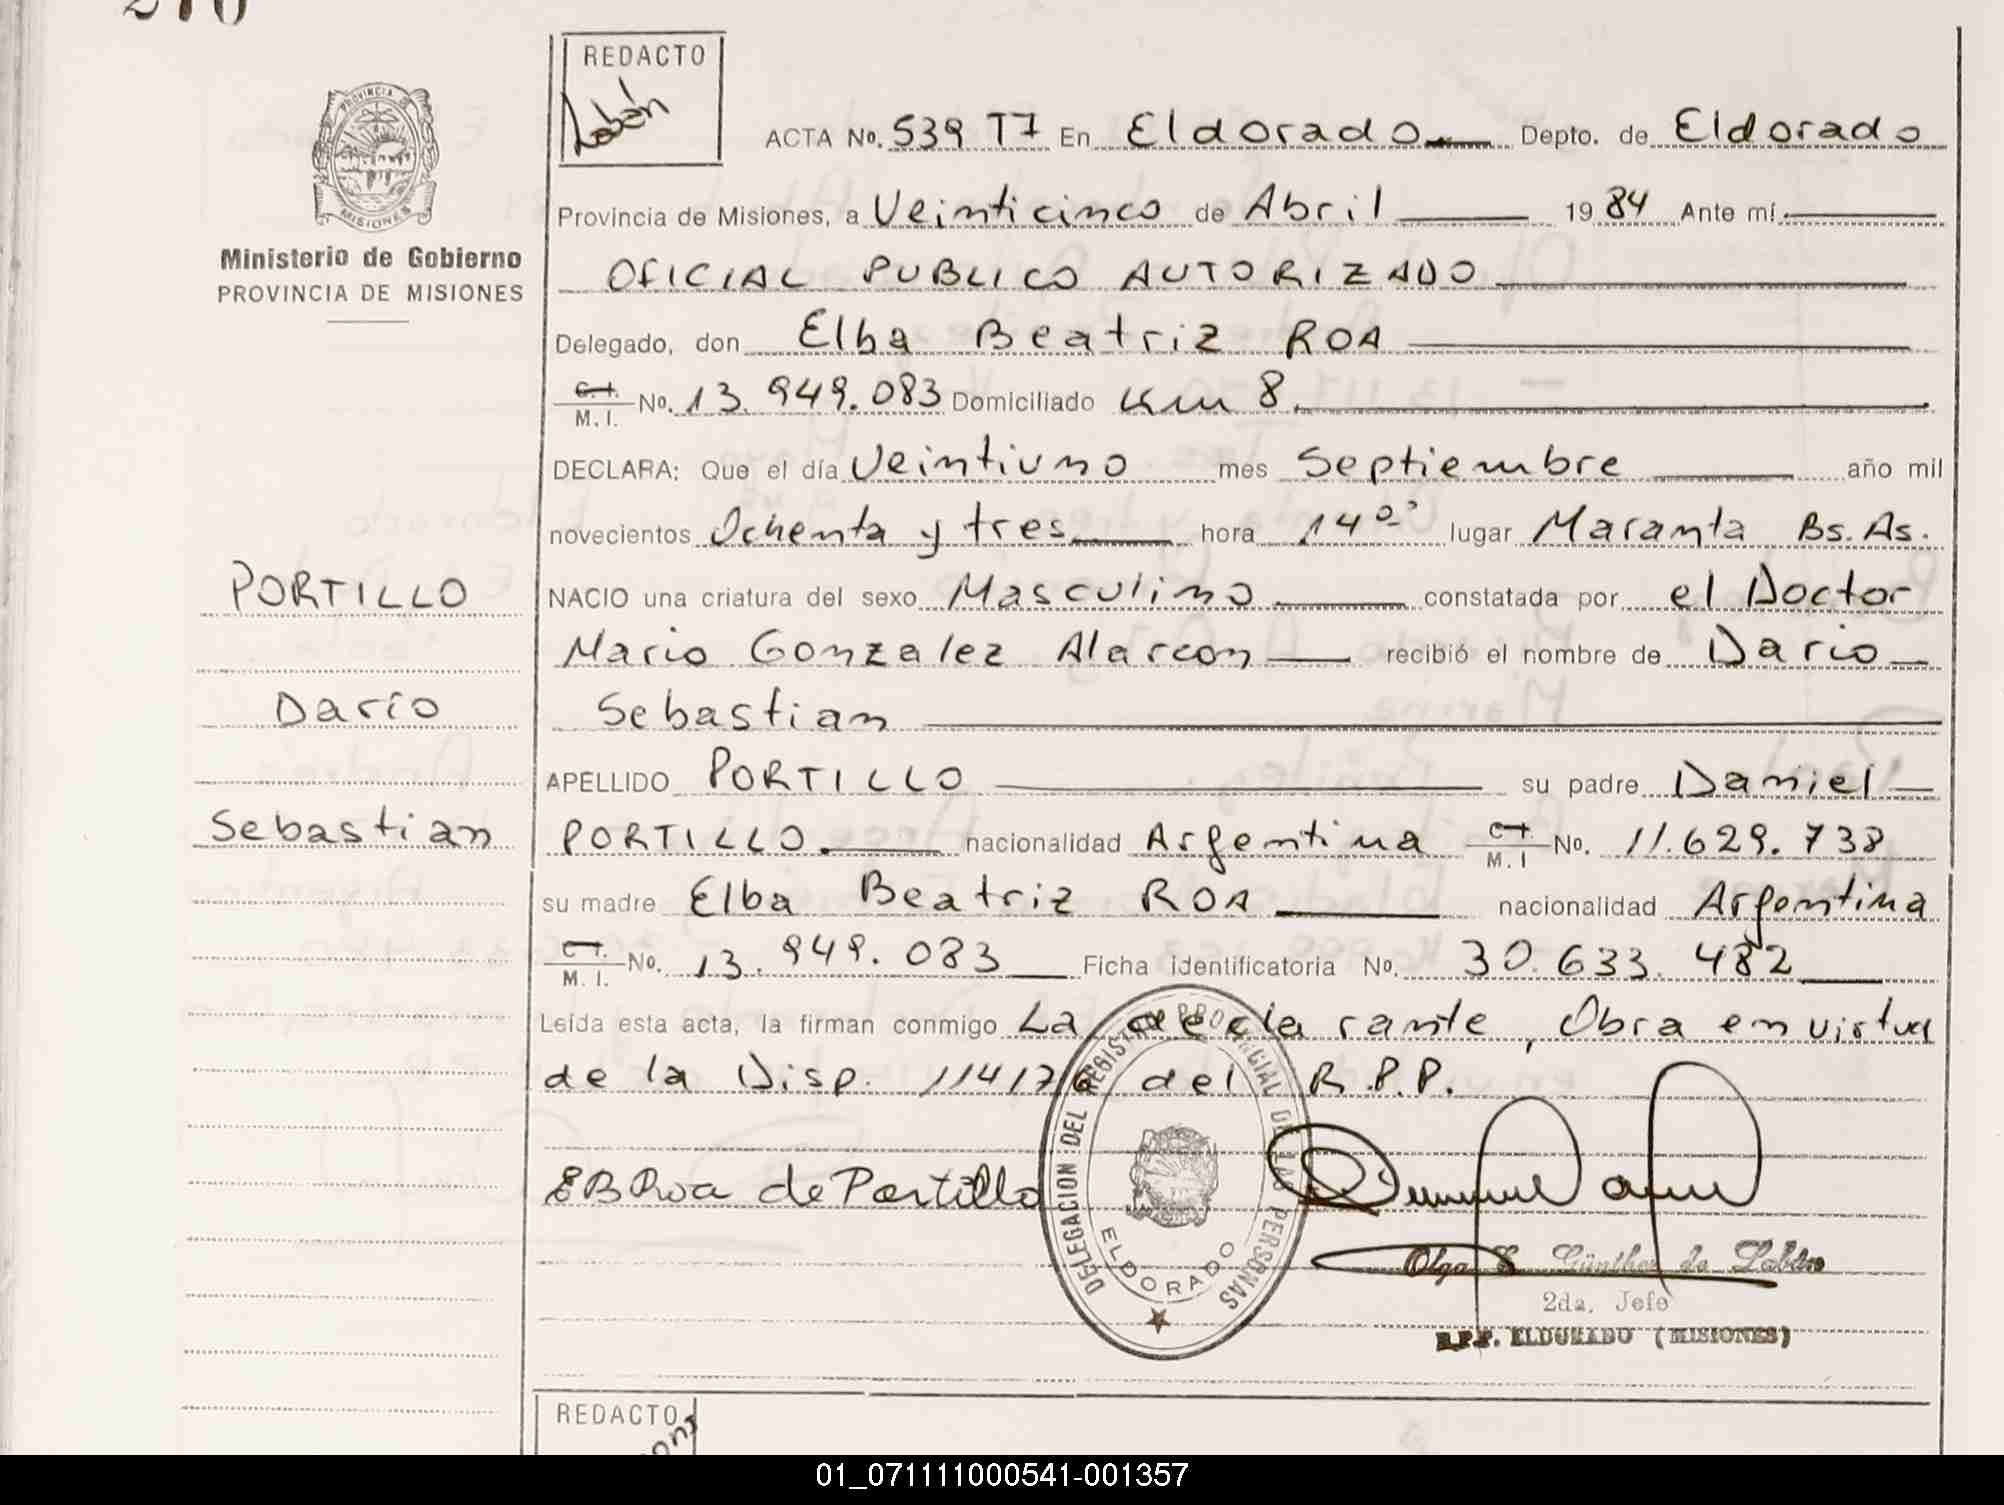 REDACTO
PROVINCIA DE
MISIONES
Ministerio de Gobierno
PROVINCIA DE MISIONES
ACTA No. 539 T7 En Eldorado Depto. de Eldorado
Provincia de Misiones, a Veinticinco de Abril 19 84 Ante mí
OFICIAL PUBLICO AUTORIZADO
Delegado, don Elba Beatriz ROA
C.I. / M. I. No. 13.949.083 Domiciliado Km 8
DECLARA: Que el día Veintiuno mes Septiembre año mil
novecientos Ochenta y tres hora 14 lugar Maranta Bs. As.
PORTILLO
NACIO una criatura del sexo Masculino constatada por el Doctor
Mario Gonzalez Alarcon recibió el nombre de Dario
Darío
Sebastian
APELLIDO PORTILLO su padre Daniel
Sebastian
PORTILLO nacionalidad Argentina C.I. / M. I No. 11.629.738
su madre Elba Beatriz ROA nacionalidad Argentina
C.I. / M. I. No. 13.949.083 Ficha identificatoria No. 30.633.482
Leída esta acta, la firman conmigo La declarante, Obra en virtud
de la Disp. 114/76 del R.P.P.
EB Roa de Portillo
DELEGACION DEL REGISTRO PROVINCIAL DE LAS PERSONAS
ELDORADO
Olga S. Günther de
2da. Jefe
R.P.P. ELDORADO (MISIONES)
REDACTO
01_071111000541-001357